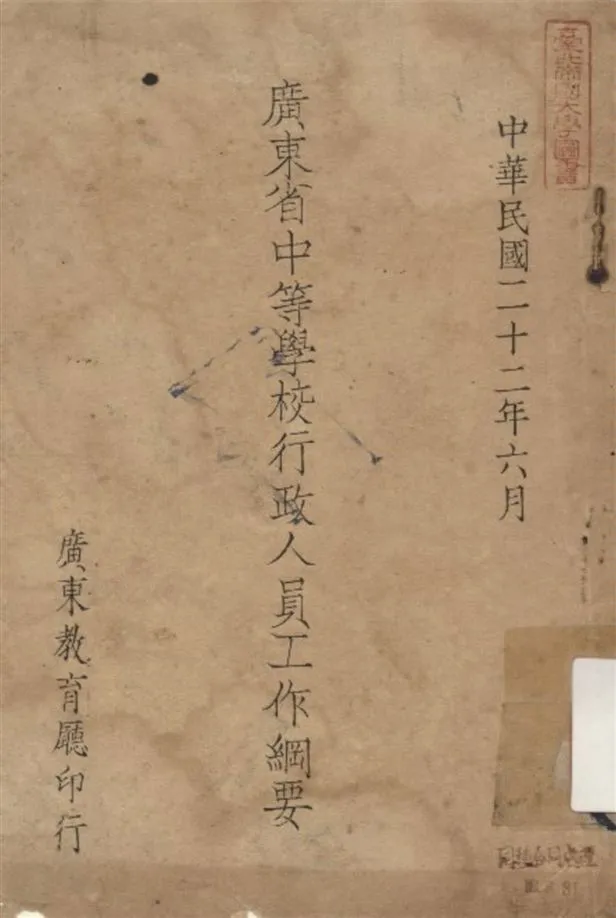 臺北帝國大學圖書
中華民國二十二年六月
廣東省中等學校行政人員工作綱要
廣東教育廳印行